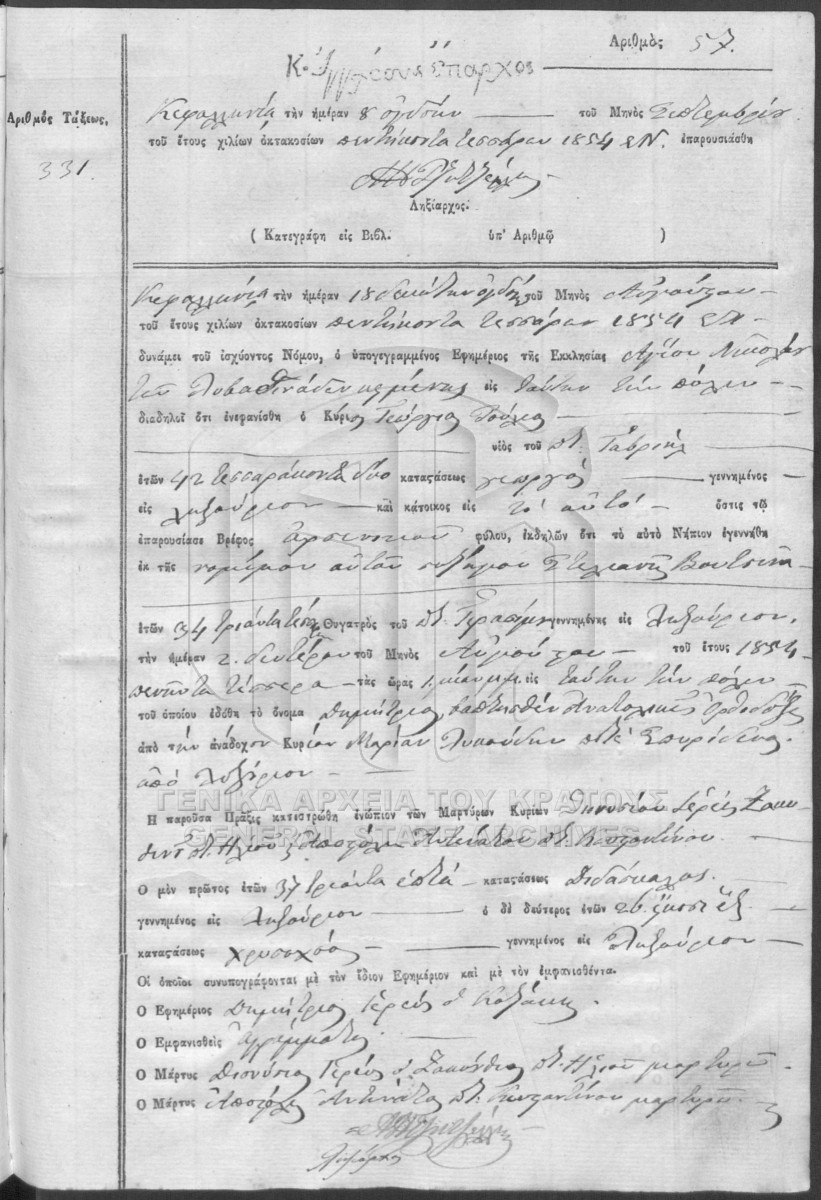 Ἀριθμὸς 57.
Ἔπαρχος
Ἀριθμὸς Τάξεως,
331.
Κεφαλληνία τὴν ἡμέραν 8 ὀγδόην τοῦ Μηνὸς Σεπτεμβρίου
τοῦ ἔτους χιλίων ὀκτακοσίων πεντήκοντα τεσσάρων 1854 ἐπαρουσιάσθη
Ληξίαρχος.
( Κατεγράφη εἰς Βιβλ. ὑπ' Ἀριθμῷ )
Κεφαλληνία τὴν ἡμέραν 18 δεκάτην ὀγδόην τοῦ Μηνὸς Αὐγούστου
τοῦ ἔτους χιλίων ὀκτακοσίων πεντήκοντα τεσσάρων 1854
δυνάμει τοῦ ἰσχύοντος Νόμου, ὁ ὑπογεγραμμένος Ἐφημέριος τῆς Ἐκκλησίας Ἁγίου Νικολάου
εἰς ταύτην τὴν πόλιν
διαδηλοῖ ὅτι ἐνεφανίσθη ὁ Κύριος Γεώργιος
υἱὸς τοῦ ποτ: Γαβριήλ
ἐτῶν 42 τεσσαράκοντα δύο καταςάσεως γεωργός γεννημένος
εἰς Ληξούριον καὶ κάτοικος εἰς τὸ αὐτό ὅστις τῷ
ἐπαρουσίασε Βρέφος ἀρσενικοῦ φύλου, ἐκδηλῶν ὅτι τὸ αὐτὸ Νήπιον ἐγεννήθη
ἐκ τῆς νομίμου αὐτοῦ συζύγου Στελιανῆς Βουτσινᾶ
ἐτῶν 34 Θυγατρὸς τοῦ ποτ: Γερασίμου γεννημένης εἰς Ληξούριον,
τὴν ἡμέραν 2. δευτέραν τοῦ Μηνὸς Αὐγούστου τοῦ ἔτους 1854
πενῆντα τέσσερα τὰς ὥρας 1, εἰς ταύτην τὴν πόλιν
τοῦ ὁποίου ἐδόθη τὸ ὄνομα Δημήτριος βαπτισθὲν Ἀνατολικῶς Ὀρθοδόξως
ἀπὸ τὴν ἀνάδοχον Κυρίαν Μαρίαν Σπυρίδωνος
ἀπὸ Ληξούριον
ΓΕΝΙΚΑ ΑΡΧΕΙΑ ΤΟΥ ΚΡΑΤΟΥΣ
GENERAL STATE ARCHIVES
Ἡ παροῦσα Πράξις κατεστρώθη ἐνώπιον τῶν Μαρτύρων Κυρίων Διονυσίου Ἱερέως
Ἀποστόλου Ἀντινάτου ποτ: Κωνσταντίνου
Ὁ μὲν πρῶτος ἐτῶν 37 τριάντα ἑπτά καταςάσεως Διδάσκαλος.
γεννημένος εἰς Ληξούριον ὁ δὲ δεύτερος ἐτῶν 26. εἴκοσι ἕξ
καταςάσεως χρυσοχόος γεννημένος εἰς Ληξούριον
Οἱ ὁποῖοι συνυπογράφονται μὲ τὸν ἴδιον Ἐφημέριον καὶ μὲ τὸν ἐμφανισθέντα.
Ὁ Ἐφημέριος Δημήτριος Ἱερεύς ὁ
Ὁ Ἐμφανισθεὶς ἀγράμματος
Ὁ Μάρτυς Διονύσιος Ἱερεύς ὁ μαρτυρῶ
Ὁ Μάρτυς Ἀποστόλης Ἀντινάτος ποτ: Κωνσταντίνου μαρτυρῶ
Ληξίαρχος